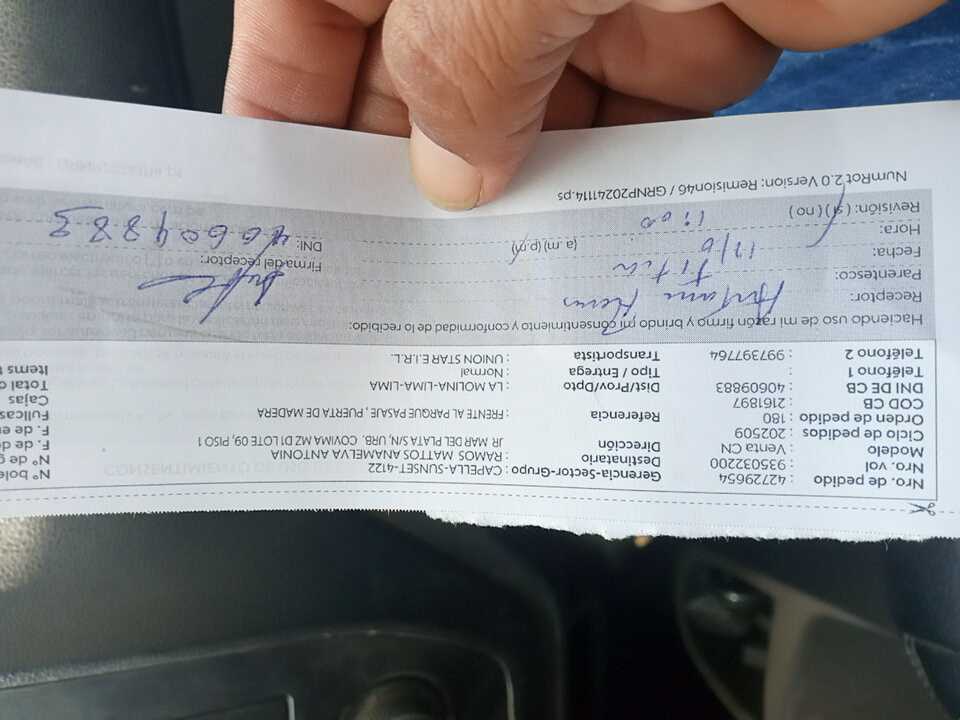 Nro. de pedido : 42729654 Gerencia-Sector-Grupo : CAPELLA-SUNSET-4122 N° bole
Nro. vol : 935032200 Destinatario : RAMOS MATTOS ANAMELVA ANTONIA N° de g
Modelo : Venta CN Dirección : JR MAR DEL PLATA S/N, URB. COVIMA MZ D1 LOTE 09, PISO 1 F. de d
Ciclo de pedidos : 202509 F. de en
Orden de pedido : 180 Referencia : FRENTE AL PARQUE PASAJE , PUERTA DE MADERA Fullcas
COD CB : 2161897 Cajas
DNI DE CB : 40609883 Dist/Prov/Dpto : LA MOLINA-LIMA-LIMA Total d
Teléfono 1 : Tipo / Entrega : Normal Items
Teléfono 2 : 997397764 Transportista : UNION STAR E.I.R.L.
Haciendo uso de mi razón firmo y brindo mi consentimiento y conformidad de lo recibido:
Receptor:
Parentesco: Titu Firma del receptor:
Fecha: 17/6
Hora: 11:00 (a.m) (p.m) DNI: 40609883
Revisión: (si) (no)
NumRot 2.0 Version: Remision46 / GRNP202411114.ps